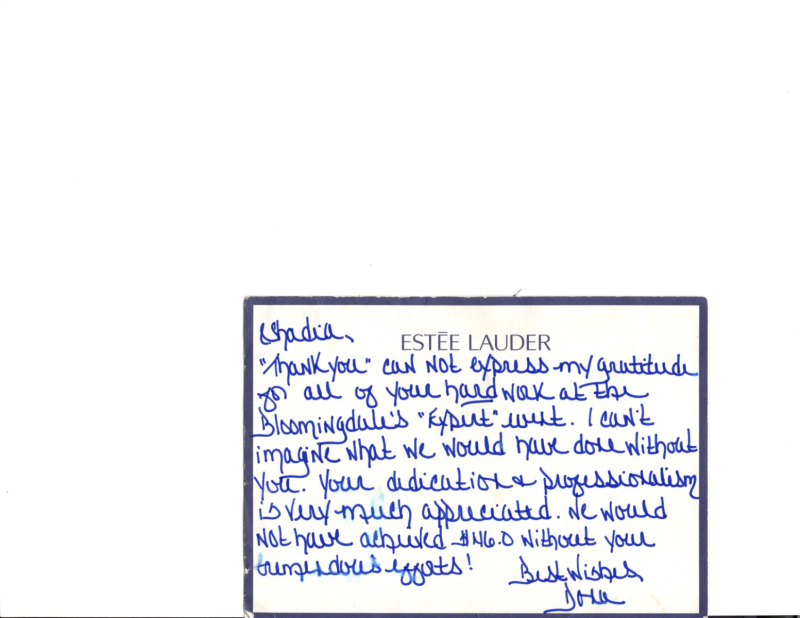 Shadia,
ESTĒE LAUDER
"Thank you" can not express my gratitude
for all of your hard work at the
Bloomingdale's "Expert" event. I can't
imagine what we would have done without
you. Your dedication & professionalism
is very much appreciated. We would
not have achieved $46.0 without your
tremendous efforts!
Best Wishes,